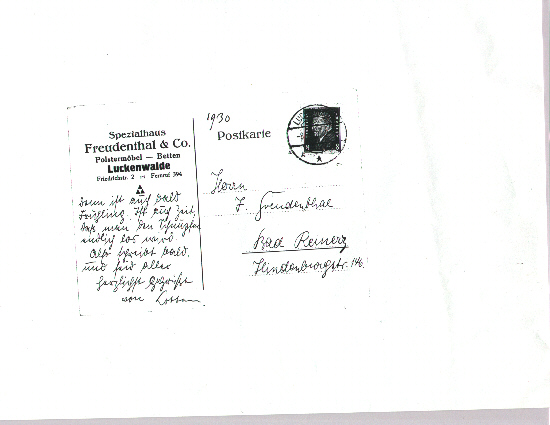 Spezialhaus
Freudenthal & Co.
Polstermöbel — Betten
Luckenwalde
Friedrichstr. 2 — Fernruf 394
dann ist auch bald
Frühling. Ist auch Zeit,
daß man den
endlich los wird.
Also schreibt bald.
und seid alle
herzlichst gegrüßt
von
1930
Postkarte
Herrn
J. Freudenthal
Bad Reinerz
Hindenburgstr.